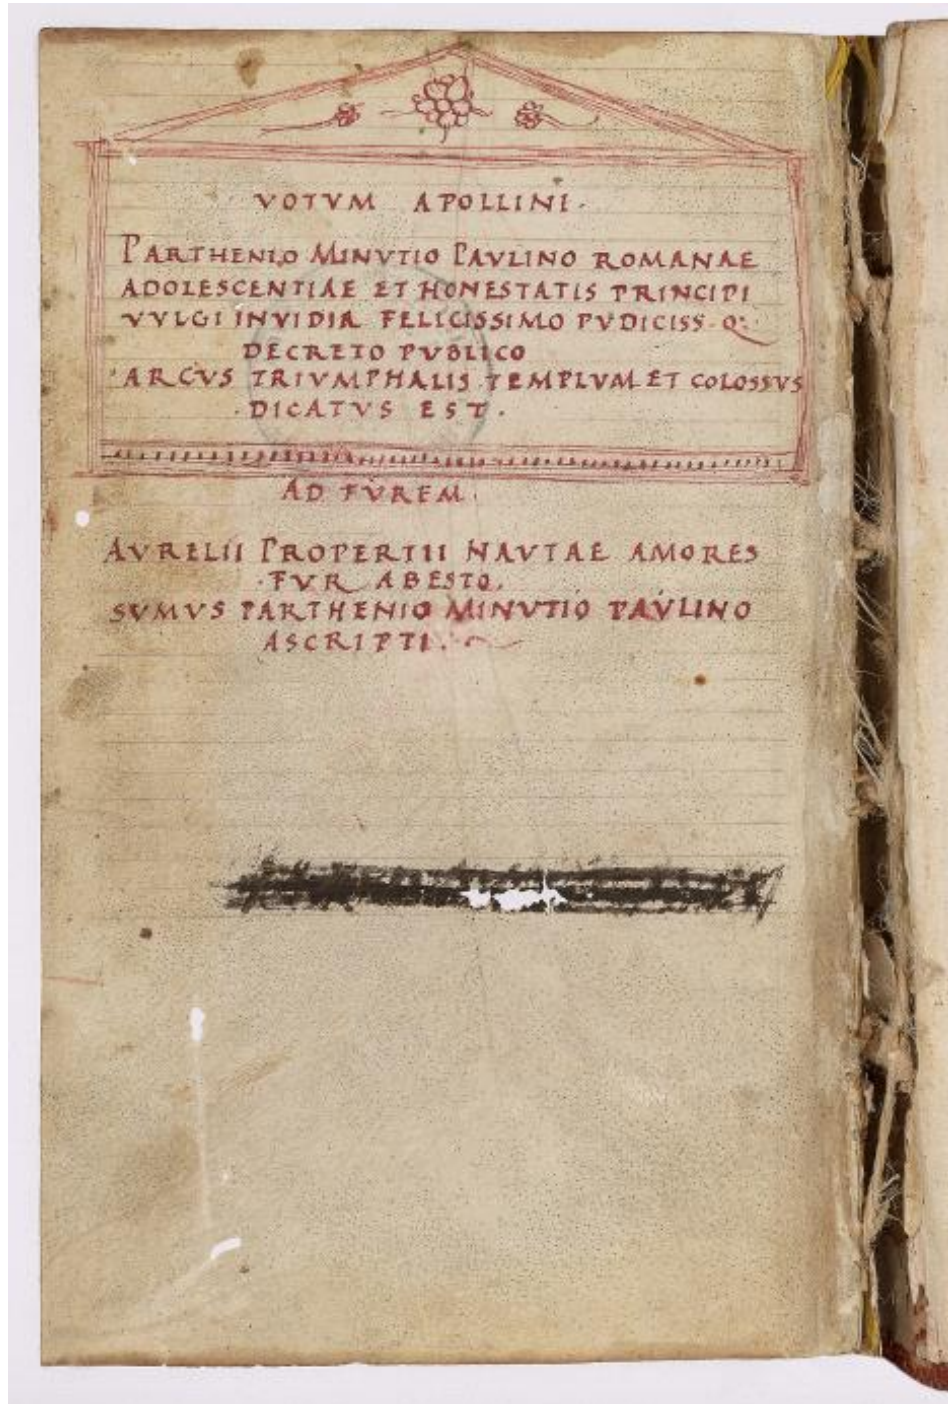 VOTVM APOLLINI.
PARTHENIO MINVTIO PAVLINO ROMANAE
ADOLESCENTIAE ET HONESTATIS PRINCIPI
VVLGI INVIDIA FELICISSIMO PVDICISS. Q:
DECRETO PVBLICO
ARCVS TRIVMPHALIS TEMPLVM ET COLOSSVS
DICATVS EST.
AD FVREM.
AVRELII PROPERTII NAVTAE AMORES
FVR ABESTO.
SVMVS PARTHENIO MINVTIO PAVLINO
ASCRIPTI.